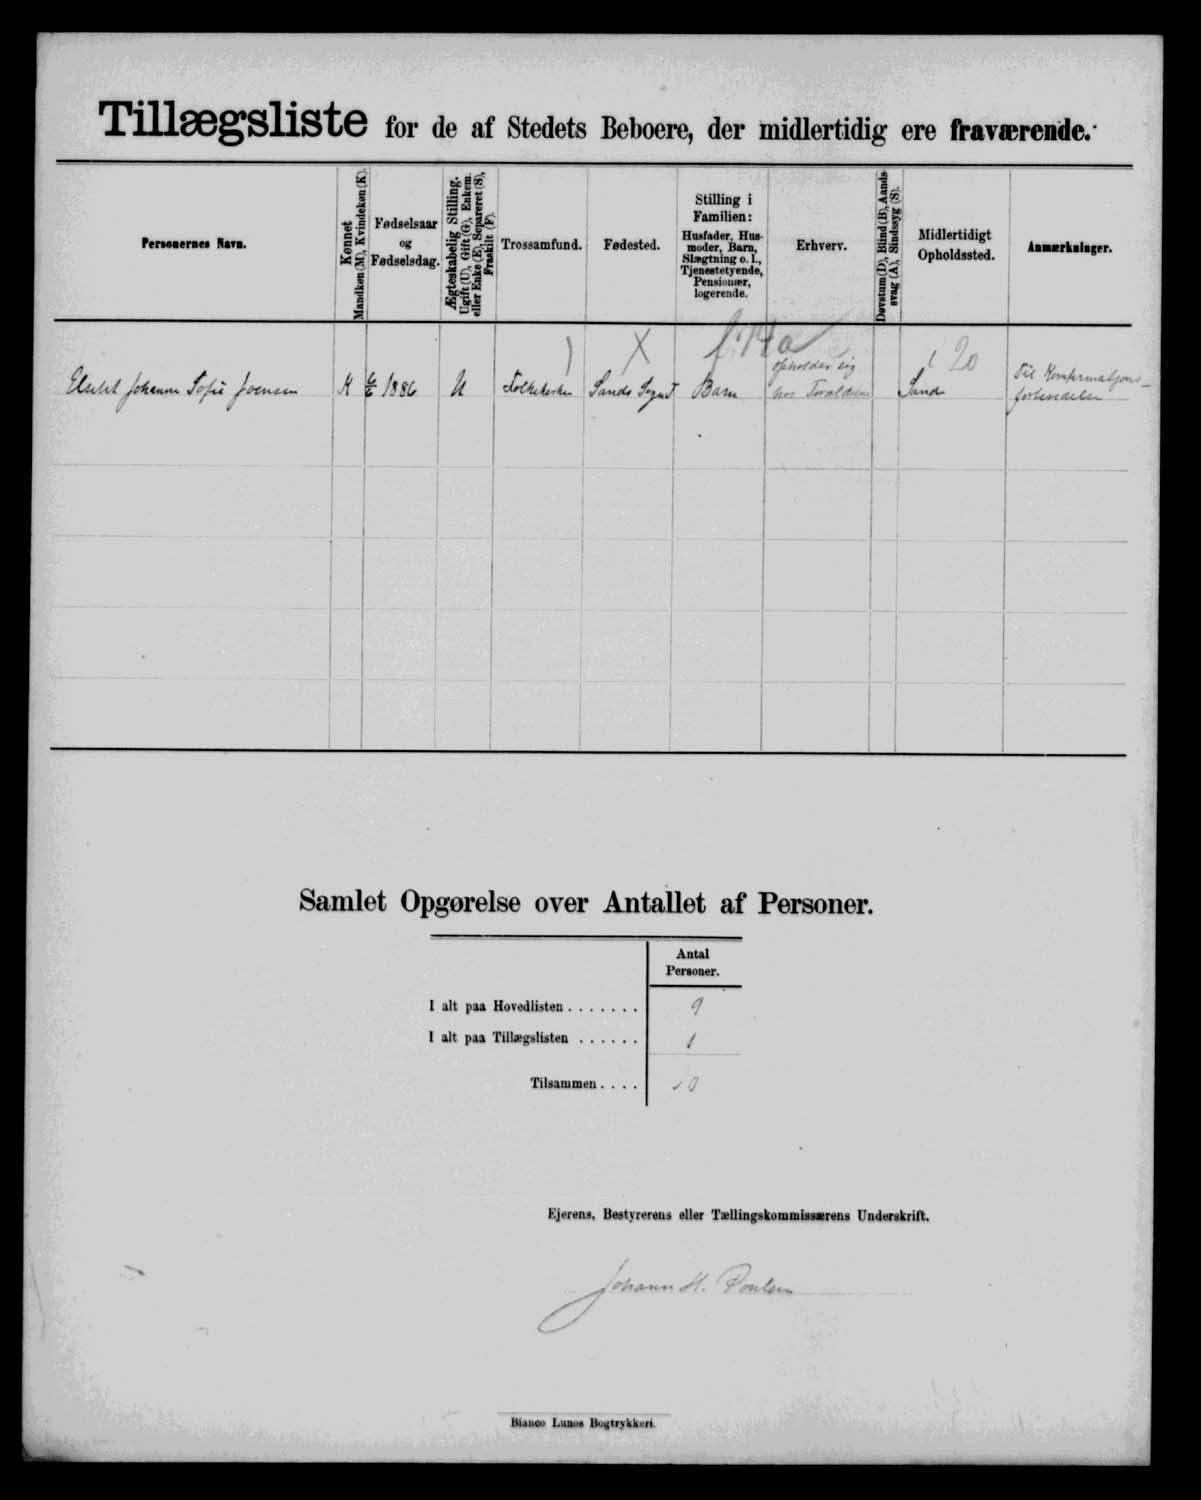 Tillægsliste for de af Stedets Beboere, der midlertidig ere fraværende.
Personernes Navn.
Kønnet
Mandkøn (M), Kvindekøn (K).
Fødselsaar
og
Fødselsdag.
Ægteskabelig Stilling.
Ugift (U), Gift (G), Enkem.
eller Enke (E), Separeret (S),
Fraskilt (F).
Trossamfund.
Fødested.
Stilling i
Familien:
Husfader, Hus-
moder, Barn,
Slægtning o. l.,
Tjenestetyende,
Pensionær,
logerende.
Erhverv.
Døvstum (D), Blind (B), Aands-
svag (A), Sindssyg (S).
Midlertidigt
Opholdssted.
Anmærkninger.
X
20
Johanne Sofie Joensen
K
6/6 1886
U
Folkekirken
Sands Sogn
Barn
opholder sig
hos Forældrene
Sand
Til Konfirmations-
forberedelse
Samlet Opgørelse over Antallet af Personer.
Antal
Personer.
I alt paa Hovedlisten . . . . . . . 9
I alt paa Tillægslisten . . . . . . 1
Tilsammen . . . . 10
Ejerens, Bestyrerens eller Tællingskommissærens Underskrift.
Johann M. Poulsen
Bianco Lunos Bogtrykkeri.